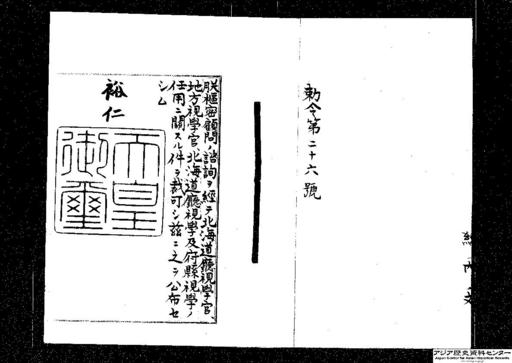 勅令第二十六號
朕樞密顧問ノ諮詢ヲ經テ北海道廳視學官、
地方視學官、北海道廳視學及府縣視學ノ
任用ニ關スル件ヲ裁可シ茲ニ之ヲ公布セ
シム
裕仁
天皇
御璽
アジア歴史資料センター
Japan Center for Asian Historical Records